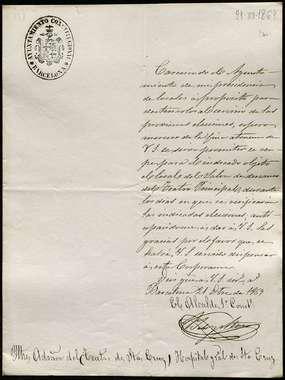 21-XII-1868
AYUNTAMIENTO CONSTITUCIONAL
BARCELONA
Careciendo el Ayunta-
miento de su presidencia
de locales á propósito para
las
proximas elecciones,
de la fina atencion de
V.S. se sirva permitir
para el indicado objeto
el local del Salon de descanso
del Teatro Principal durante
los dias en que se verifiquen
las indicadas elecciones, anti
cipandome á dar á V.S. las
gracias por el favor que
V.S. servirá dispensar
á esta Corporacion.
Dios gue á V.S. m. a.
Barcelona 21 Dbre de 1868
El Alcalde 1º Const.
Adaor del Teatro de Sta Cruz, Hospital gral de Sta Cruz